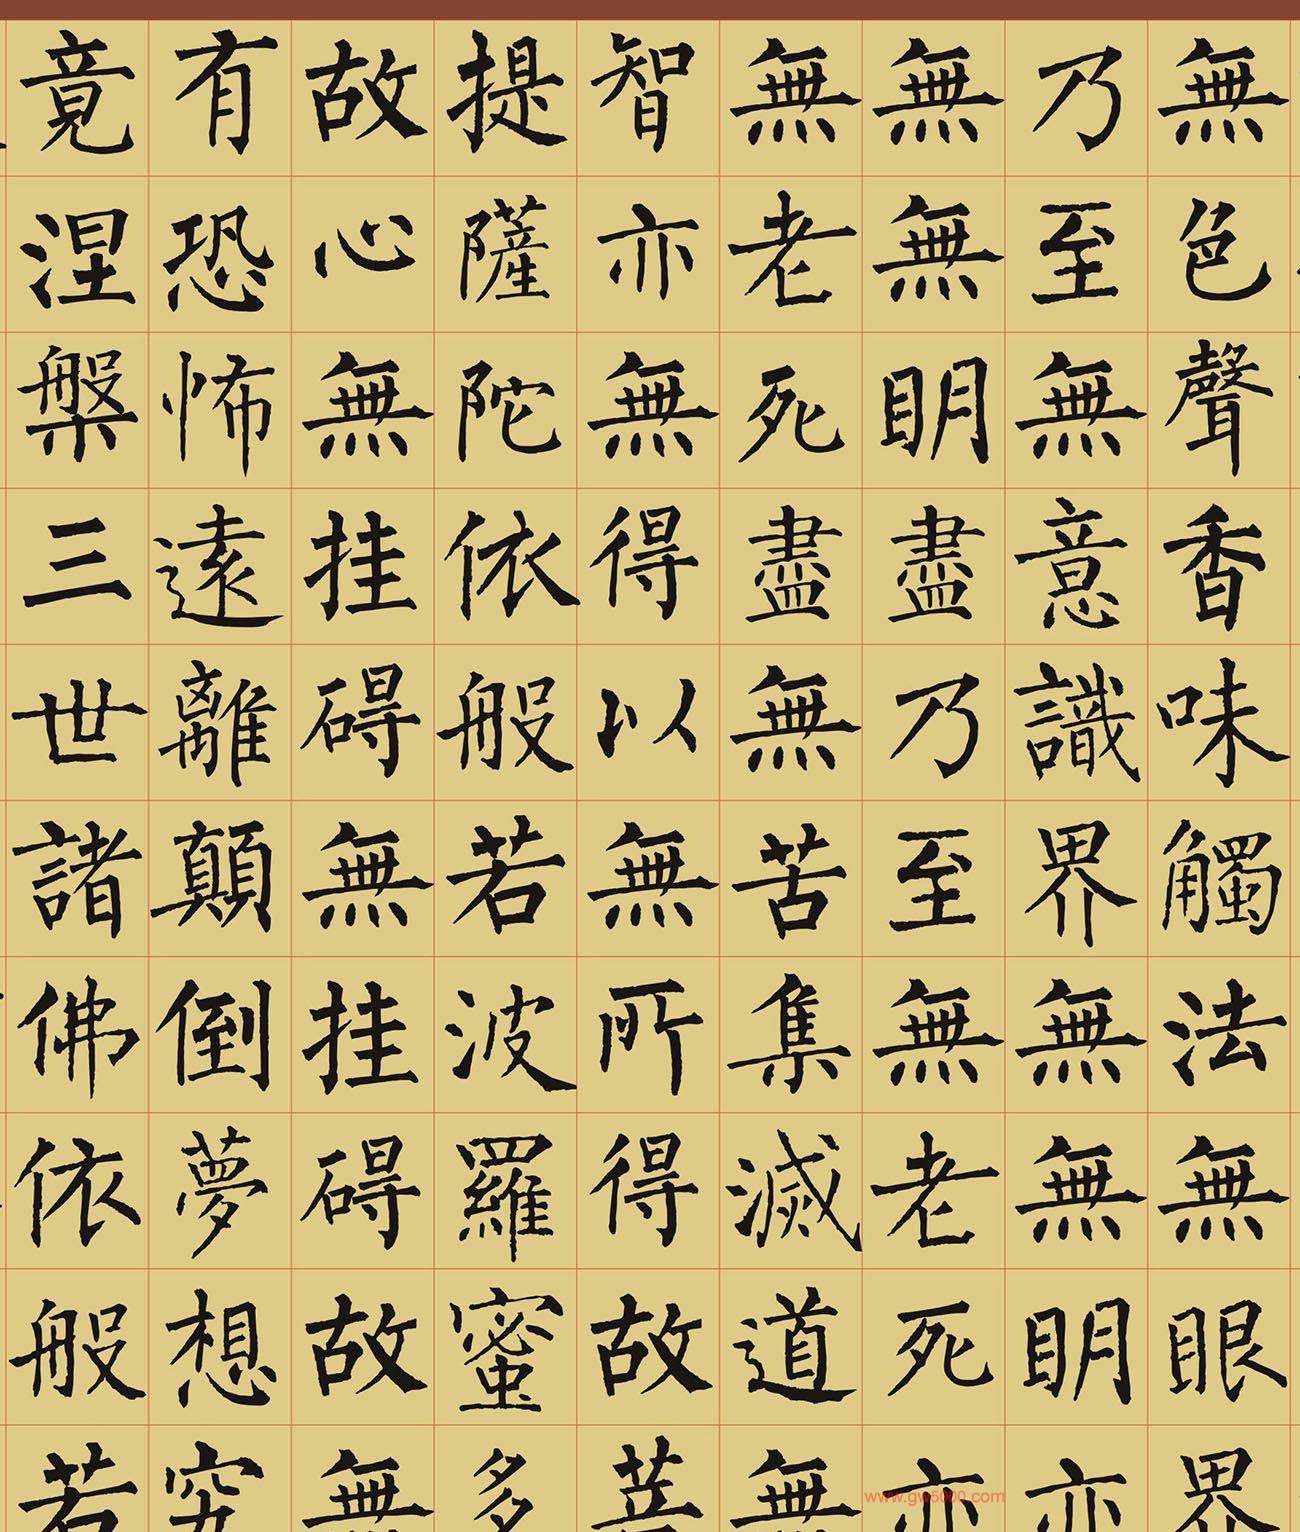 無色聲香味觸法無眼界
乃至無意識界無無明亦
無無明盡乃至無老死亦
無老死盡無苦集滅道無
智亦無得以無所得故菩
提薩陀依般若波羅蜜多
故心無挂碍無挂碍故無
有恐怖遠離顛倒夢想究
竟涅槃三世諸佛依般若
www.gw5000.com